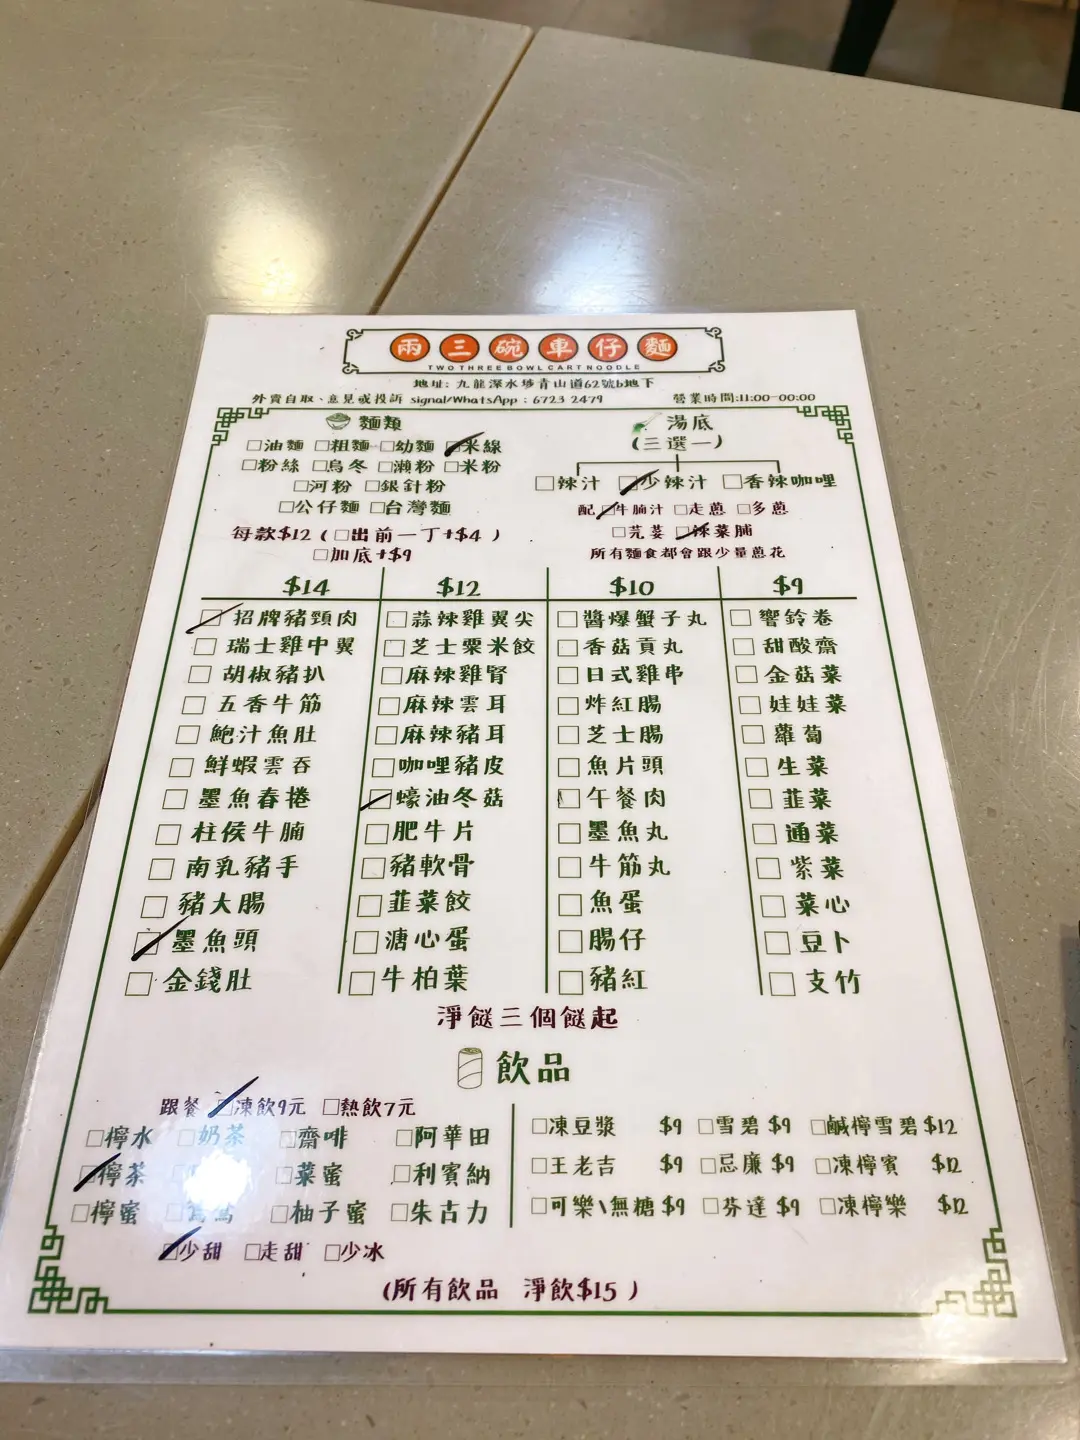 兩三碗車仔麵
TWO THREE BOWL CART NOODLE
地址: 九龍深水埗青山道62號b地下
外賣自取、意見或投訴 signal/WhatsApp : 6723 2479 營業時間:11:00-00:00
麵類
□油麵 □粗麵 □幼麵 □米線
□粉絲 □烏冬 □瀨粉 □米粉
□河粉 □銀針粉
□公仔麵 □台灣麵
每款$12 ( □出前一丁+$4 )
□加底+$9
湯底
(三選一)
□辣汁 □少辣汁 □香辣咖哩
配□牛腩汁 □走蔥 □多蔥
□芫荽 □辣菜脯
所有麵食都會跟少量蔥花
$14 $12 $10 $9
□招牌豬頸肉 □蒜辣雞翼尖 □醬爆蟹子丸 □響鈴卷
□瑞士雞中翼 □芝士粟米餃 □香菇貢丸 □甜酸齋
□胡椒豬扒 □麻辣雞腎 □日式雞串 □金菇菜
□五香牛筋 □麻辣雲耳 □炸紅腸 □娃娃菜
□鮑汁魚肚 □麻辣豬耳 □芝士腸 □蘿蔔
□鮮蝦雲吞 □咖哩豬皮 □魚片頭 □生菜
□墨魚春捲 □蠔油冬菇 □午餐肉 □韮菜
□柱侯牛腩 □肥牛片 □墨魚丸 □通菜
□南乳豬手 □豬軟骨 □牛筋丸 □紫菜
□豬大腸 □韮菜餃 □魚蛋 □菜心
□墨魚頭 □溏心蛋 □腸仔 □豆卜
□金錢肚 □牛柏葉 □豬紅 □支竹
淨餸三個餸起
飲品
跟餐 □凍飲9元 □熱飲7元
□檸水 □奶茶 □齋啡 □阿華田
□檸茶 □菜蜜 □利賓納
□檸蜜 □鴛鴦 □柚子蜜 □朱古力
□少甜 □走甜 □少冰
□凍豆漿 $9 □雪碧 $9 □鹹檸雪碧 $12
□王老吉 $9 □忌廉 $9 □凍檸賓 $12
□可樂\無糖 $9 □芬達 $9 □凍檸樂 $12
(所有飲品 淨飲$15 )